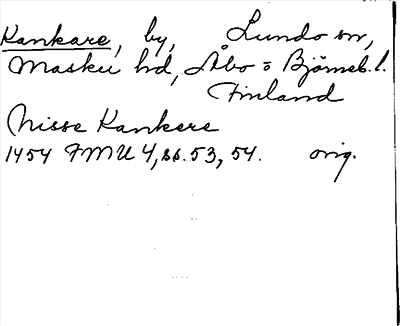 Kankare, by, Lundo sn,
Masku hd, Åbo o Björneb. l.
Finland
Nisse Kankere
1454 FMU 4, ss. 53, 54. orig.